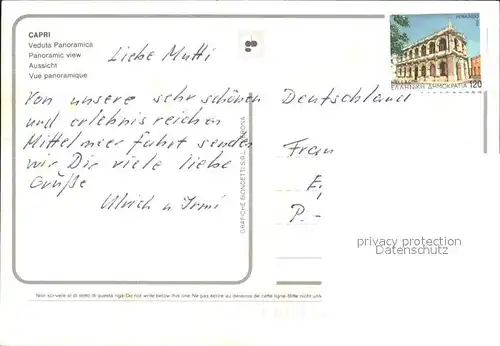 CAPRI
Veduta Panoramica
Panoramic view
Aussicht
Vue panoramique
Liebe Mutti
Von unsere sehr schönen
und erlebnisreichen
Mittelmeerfahrt senden
wir Dir viele liebe
Grüße
Ulrich u Irmi
GRAFICHE BIONDETTI S.R.L.
Deutschland
Frau
P.-
ΕΛΛΗΝΙΚΗ ΔΗΜΟΚΡΑΤΙΑ 120
privacy protection
Datenschutz
Non scrivere al di sotto di questa riga-Do not write below this line-Ne pas écrire au dessous de cette ligne-Bitte nicht uns